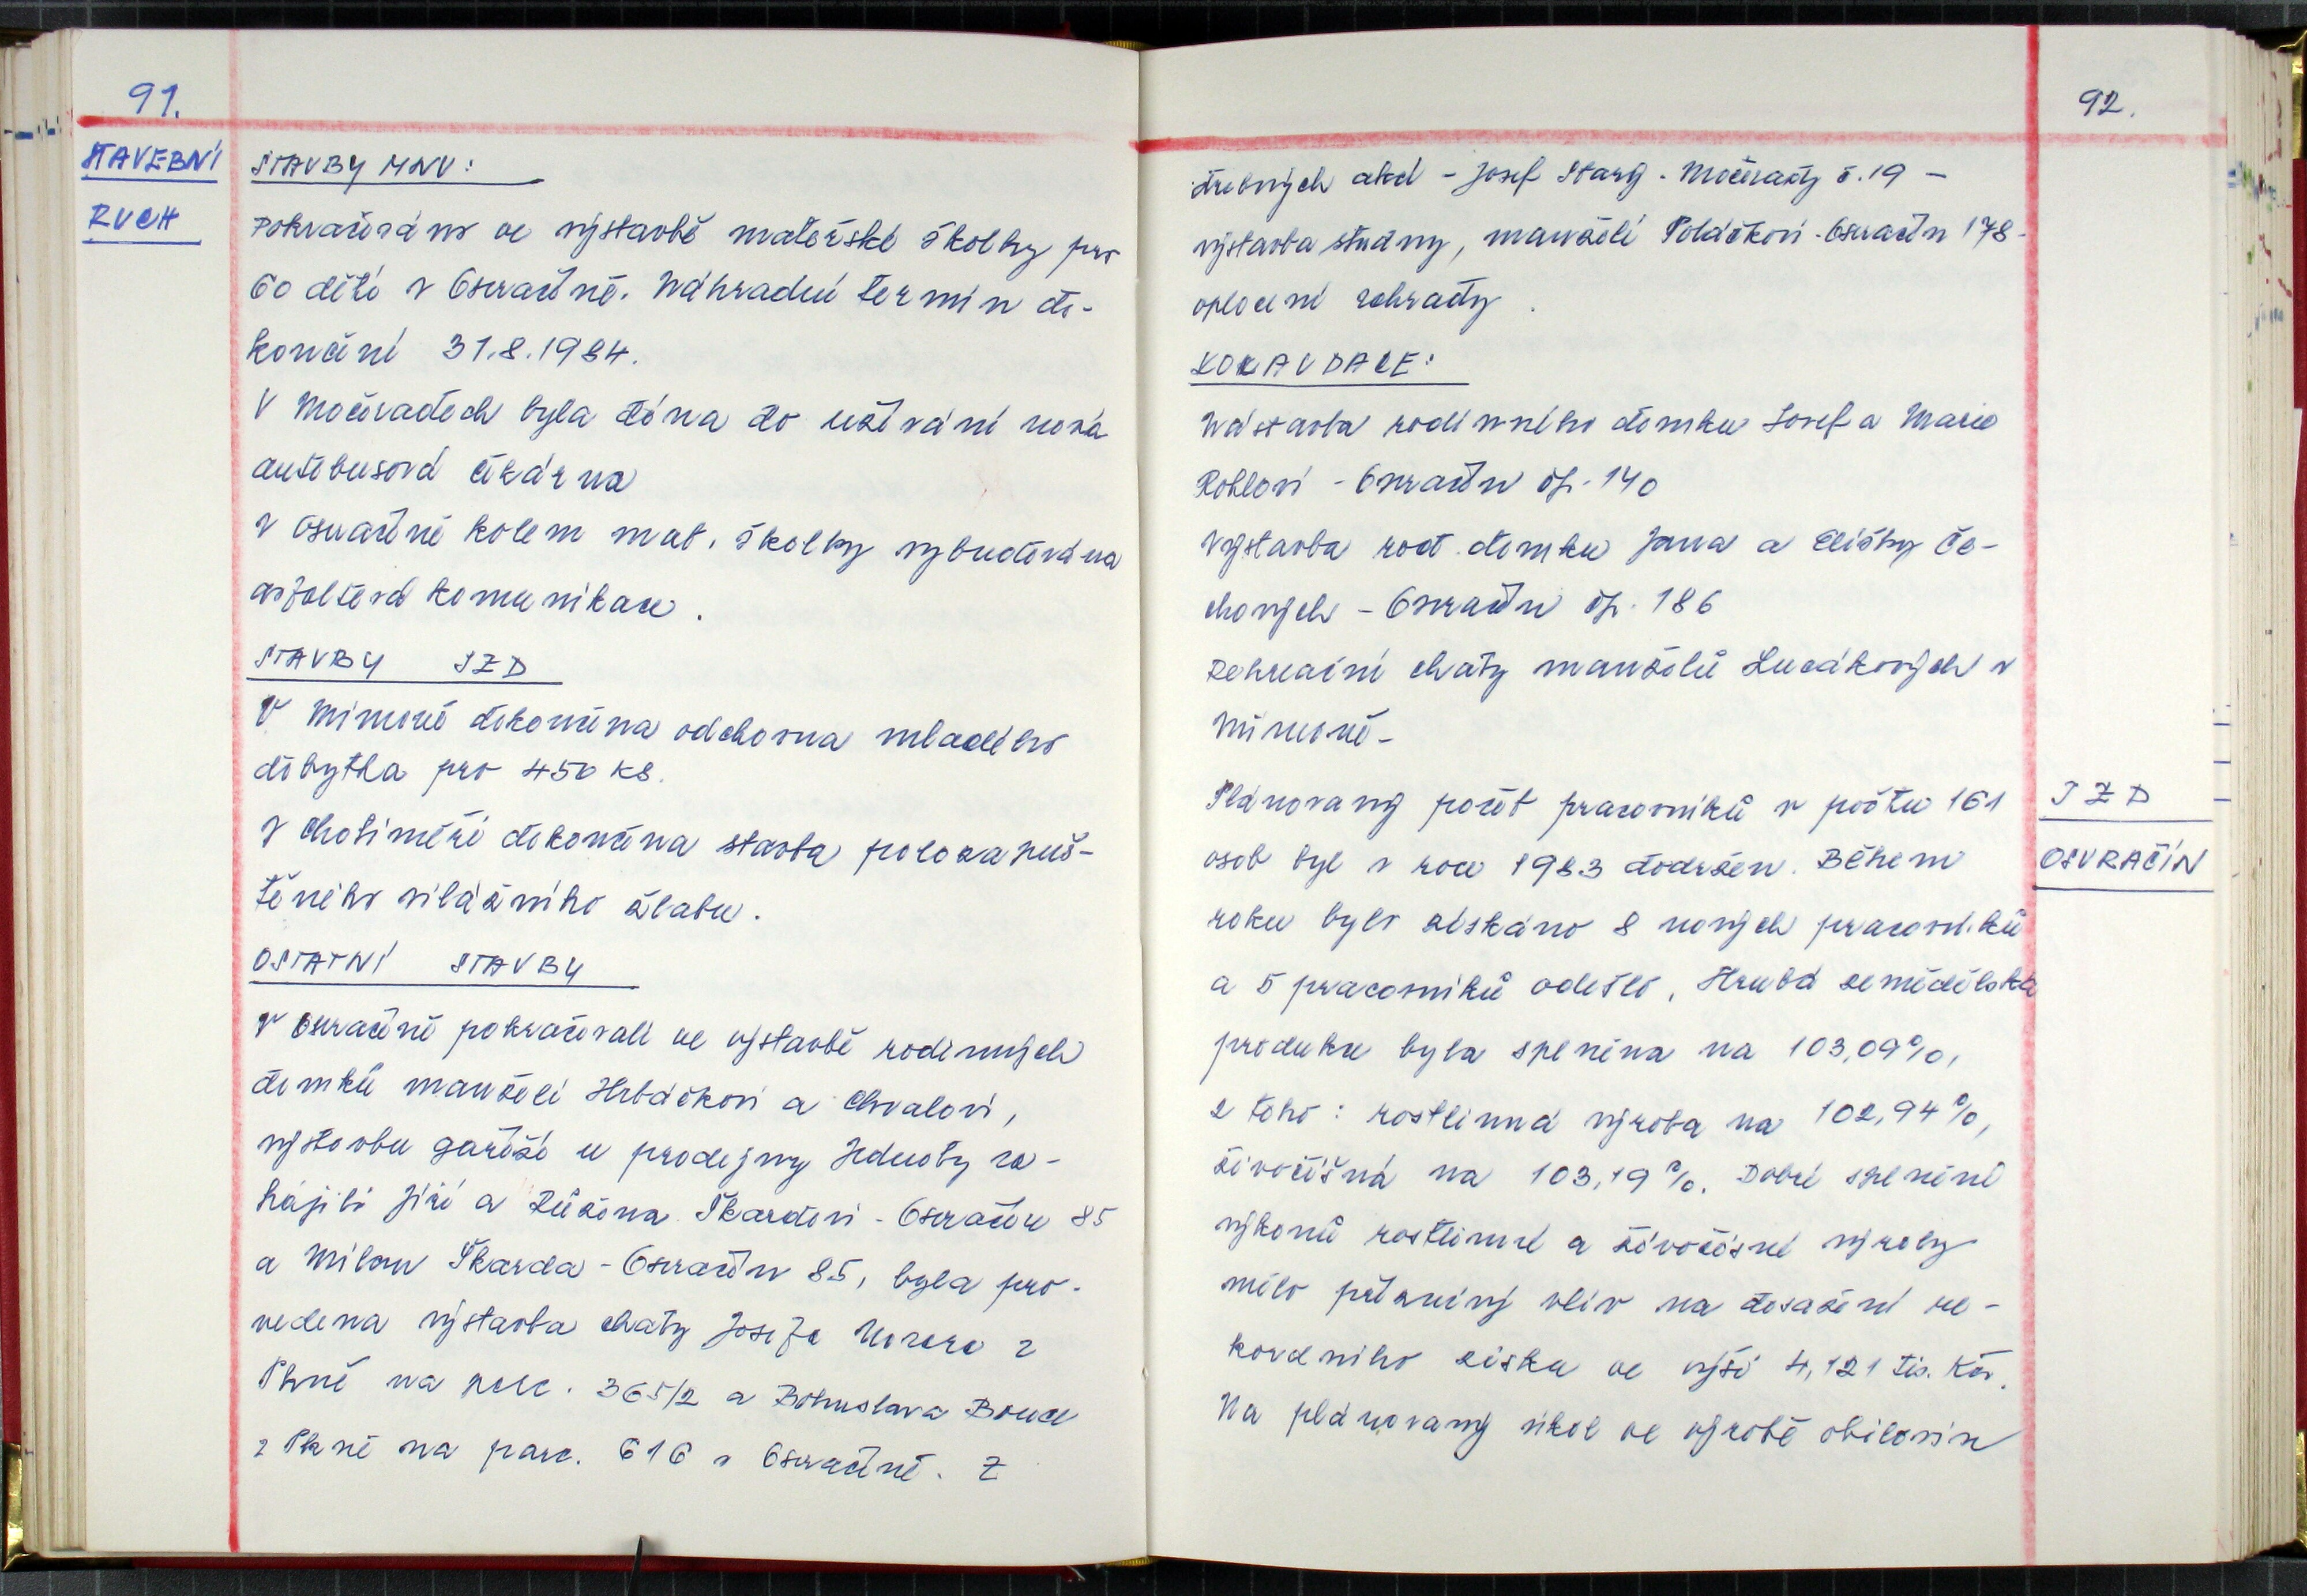 91.
STAVEBNÍ
RUCH
STAVBY MNV:
Pokračováno ve výstavbě mateřské školky pro
60 dětí v Osvračíně. Náhradní termín do-
končení 31.8.1984.
V Močeradech byla dána do užívání nová
autobusová čekárna
v Osvračíně kolem mat. školky vybudována
asfaltová komunikace.
STAVBY JZD
V Mimově dokončena odchovna mladého
dobytka pro 450 ks.
V Chotiměři dokončena stavba polozapuš-
těného silážního žlabu.
OSTATNÍ STAVBY
V Osvračíně pokračovali ve výstavbě rodinných
domků manželé Hrbáčkovi a Chvalovi,
výstavbu garáží u prodejny Jednoty za-
hájili Jiří a Růžena Škardovi - Osvračín 85
a Milan Škarda - Osvračín 85, byla pro-
vedena výstavba chaty Josefa z
Plzně na parc. 365/2 a Bohuslava
z Plzně na parc. 616 v Osvračíně. Z
92.
drobných akcí - Josef Starý - Močerady č. 19 -
výstavba studny, manželé Poláčkovi - Osvračín 178 -
oplocení zahrady.
KOLAUDACE:
Nástavba rodinného domku Josef a Marie
Rohlovi - Osvračín čp. 140
Výstavba rod. domku Jana a Elišky Če-
chových - Osvračín čp. 186
Rekreační chaty manželů Lucákových v
Mimově -
JZD
OSVRAČÍN
Plánovaný počet pracovníků v počtu 161
osob byl v roce 1983 dodržen. Během
roku bylo získáno 8 nových pracovníků
a 5 pracovníků odešlo. Hrubá zemědělská
produkce byla splněna na 103,09%,
z toho: rostlinná výroba na 102,94%,
živočišná na 103,19%. Dobré splnění
výkonů rostlinné a živočišné výroby
mělo příznivý vliv na dosažení re-
kordního zisku ve výši 4,121 tis. Kčs.
Na plánovaný úkol ve výrobě obilovin